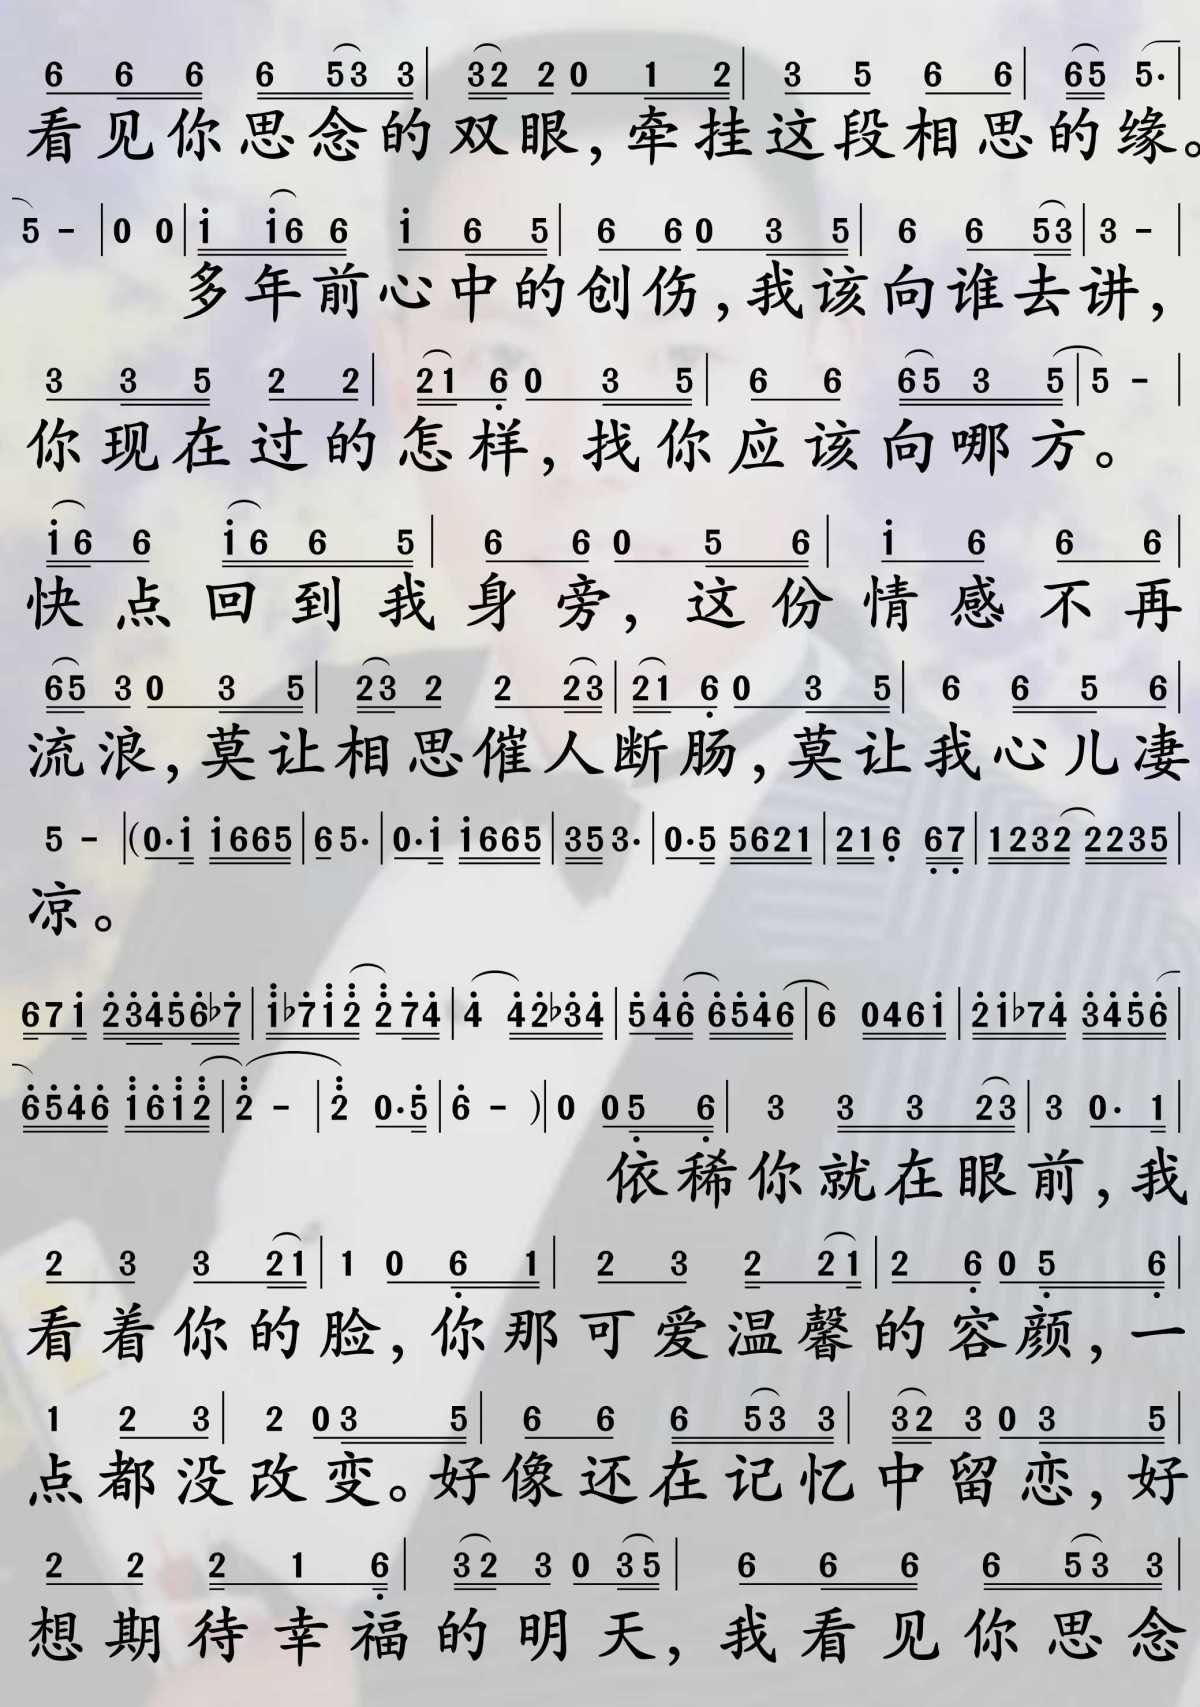 6 6 6 6 53 3 | 32 2 0 1 2 | 3 5 6 6 | 65 5· |
看见你思念的双眼,牵挂这段相思的缘。
5 - | 0 0 | i i6 6 i 6 5 | 6 6 0 3 5 | 6 6 53 | 3 - |
多年前心中的创伤,我该向谁去讲,
3 3 5 2 2 | 21 6 0 3 5 | 6 6 65 3 5 | 5 - |
你现在过的怎样,找你应该向哪方。
i6 6 i6 6 5 | 6 6 0 5 6 | i 6 6 6 |
快点回到我身旁,这份情感不再
65 3 0 3 5 | 23 2 2 23 | 21 6 0 3 5 | 6 6 5 6 |
流浪,莫让相思催人断肠,莫让我心儿凄
5 - | (0·i i665 | 6 5· | 0·i i665 | 35 3· | 0·5 5621 | 21 6 67 | 1232 2235 |
凉。
67i 23456♭7 | i♭7i2 274 | 4 42♭34 | 546 6546 | 6 046i | 2i♭74 3456 |
6546 i6i2 | 2 - | 2 0·5 | 6 - ) | 0 05 6 | 3 3 3 23 | 3 0· 1 |
依稀你就在眼前,我
2 3 3 21 | 1 0 6 1 | 2 3 2 21 | 2 6 0 5 6 |
看着你的脸,你那可爱温馨的容颜,一
1 2 3 | 2 0 3 5 | 6 6 6 53 3 | 32 3 0 3 5 |
点都没改变。好像还在记忆中留恋,好
2 2 2 1 6 | 32 3 0 35 | 6 6 6 6 53 3 |
想期待幸福的明天,我看见你思念